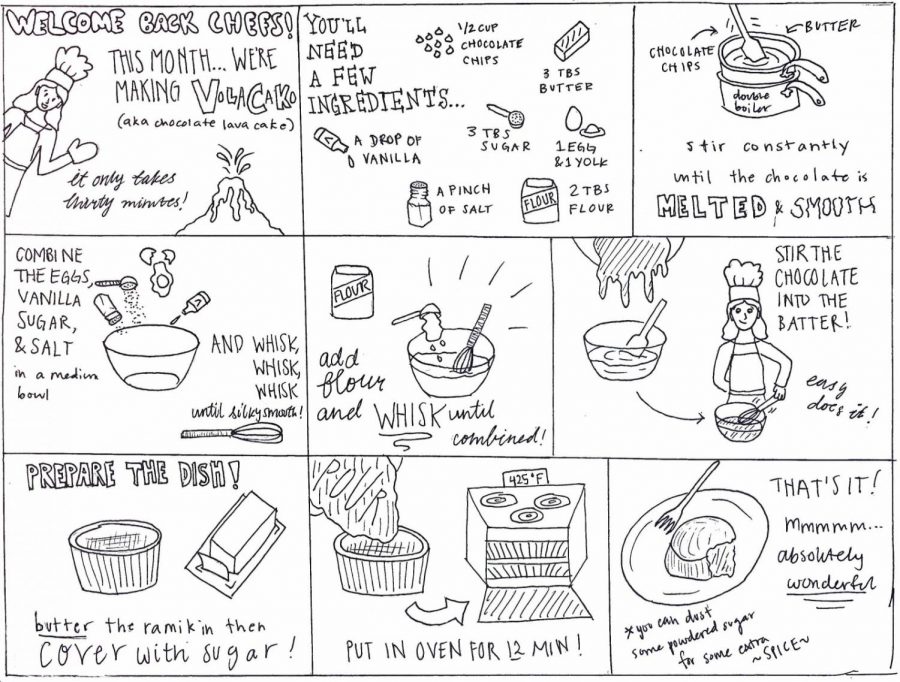 WELCOME BACK CHEFS!
THIS MONTH... WE'RE
MAKING VOLACAKO
(aka chocolate lava cake)
it only takes
thirty minutes!
YOU'LL
NEED
A FEW
INGREDIENTS...
1/2 CUP
CHOCOLATE
CHIPS
3 TBS
BUTTER
A DROP OF
VANILLA
3 TBS
SUGAR
1 EGG
& 1 YOLK
A PINCH
OF SALT
FLOUR
2 TBS
FLOUR
CHOCOLATE
CHIPS
BUTTER
double
boiler
stir constantly
until the chocolate is
MELTED & SMOOTH
COMBINE
THE EGGS,
VANILLA
SUGAR,
& SALT
in a medium
bowl
AND WHISK,
WHISK,
WHISK
until silky smooth!
FLOUR
add
flour
and WHISK until
combined!
STIR THE
CHOCOLATE
INTO THE
BATTER!
easy
does it!
PREPARE THE DISH!
butter the ramikin then
cover with sugar!
425°F
PUT IN OVEN FOR 12 MIN!
THAT'S IT!
mmmmm...
absolutely
wonderful
*you can dust
some powdered sugar
for some extra
~SPICE~